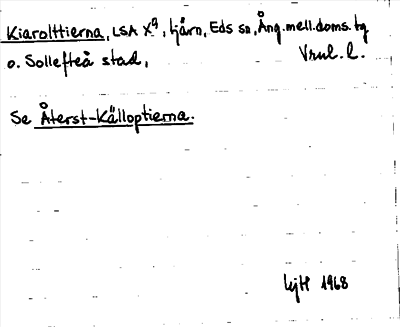 Kiarolttierna, LSA X9, tjärn, Eds sn, Ång.mell.doms.tg
o. Sollefteå stad, Vrnl. l.
Se Återst-Källoptierna.
1968